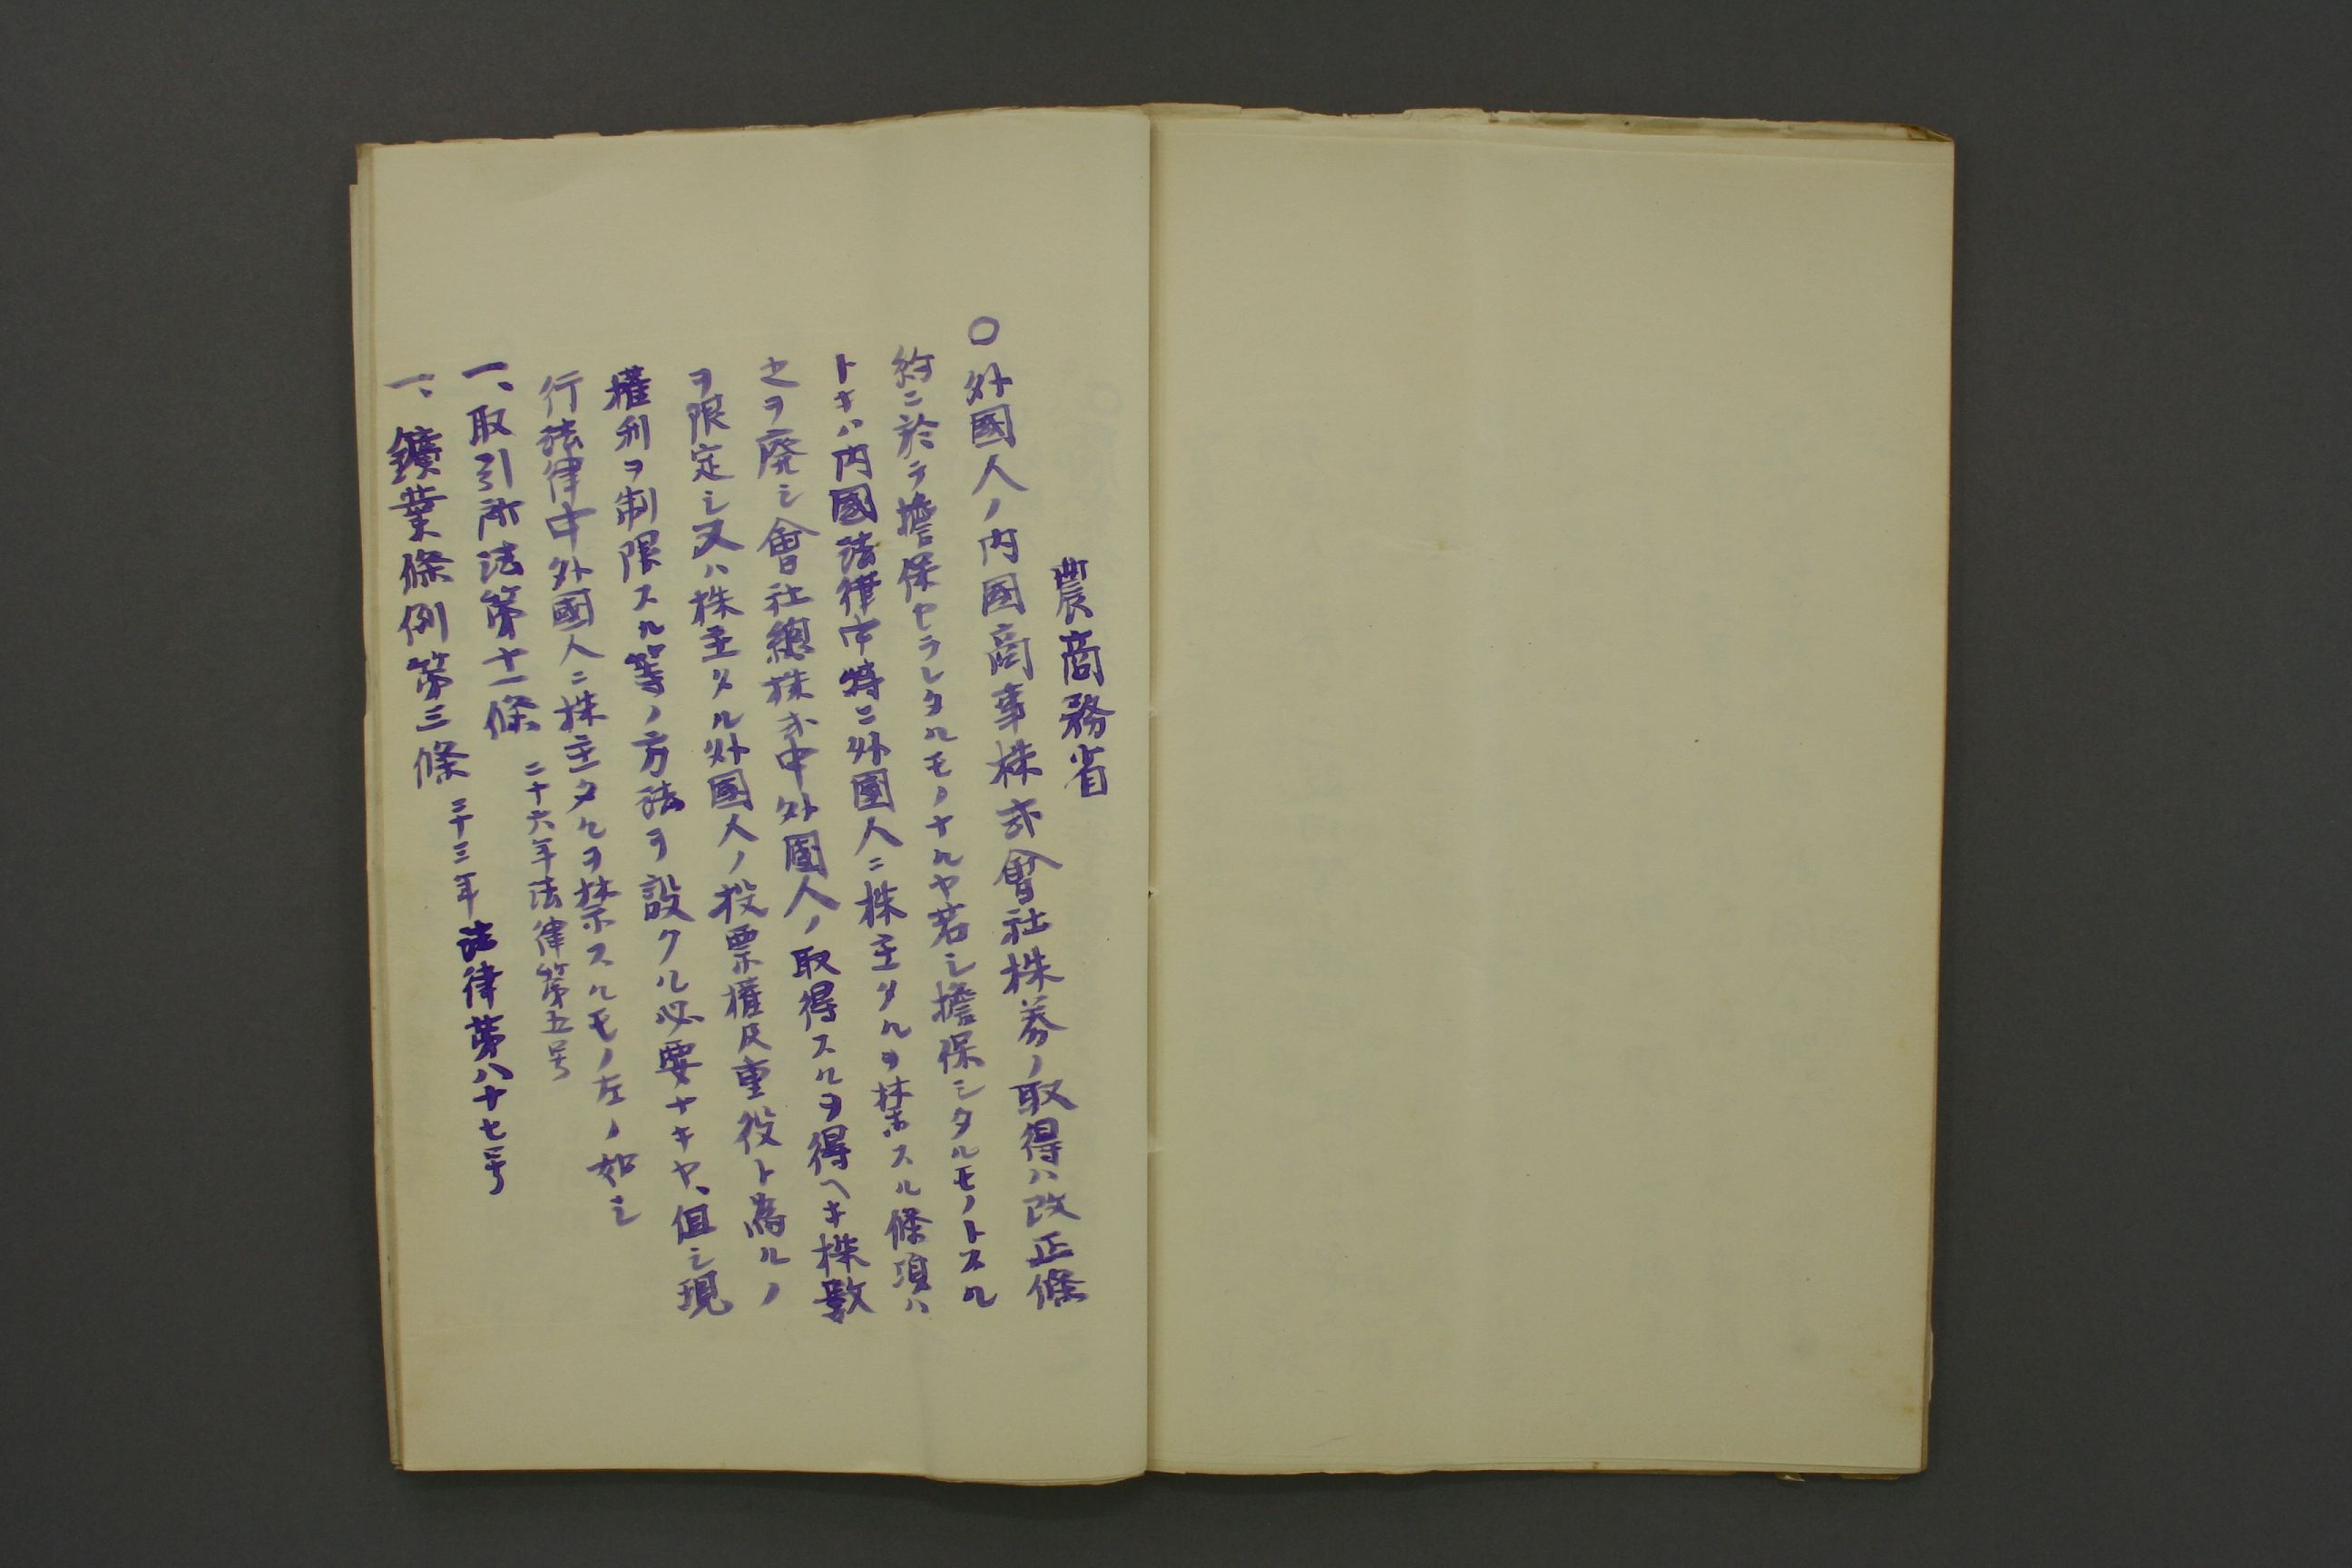 農商務省
〇外國人ノ内国商事株式會社株券ノ取得ハ改正條
約ニ於テ擔保セラレタルモノナルヤ若シ擔保シタルモノトスル
トキハ内國法律中特ニ外國人ニ株主タルヲ禁スル條項ハ
之ヲ廃シ會社總株式中外國人ノ取得スルヲ得ヘキ株數
ヲ限定シ又ハ株主タル外國人ノ投票權及重役ト為ルノ
權利ヲ制限スル等ノ方法ヲ設クル必要ナキヤ、但シ現
行法律中外國人ニ株主タルヲ禁スルモノ左ノ如シ
一、取引所法第十一條 二十六年法律第五号
一、鑛業條例第三條 二十三年法律第八十七号